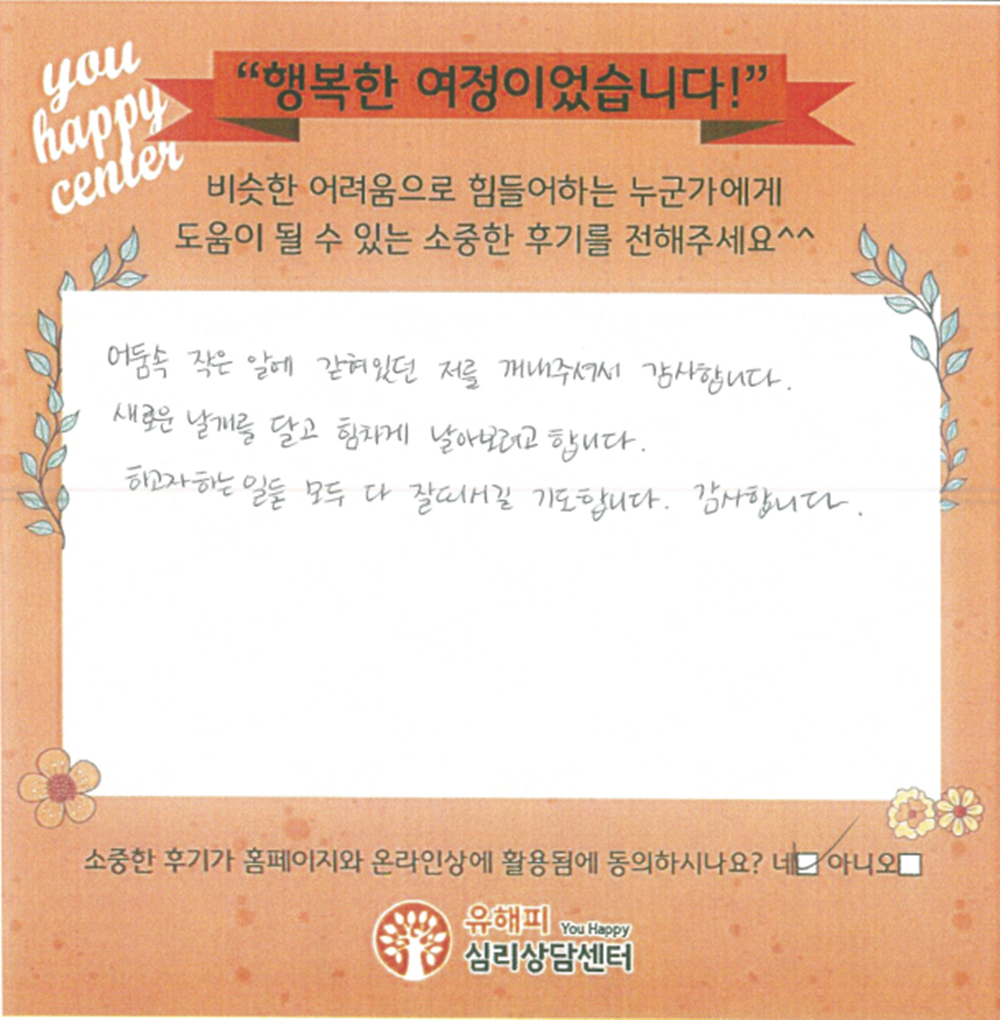 you
happy
center
“행복한 여정이었습니다!”
비슷한 어려움으로 힘들어하는 누군가에게
도움이 될 수 있는 소중한 후기를 전해주세요^^
어둠속 작은 알에 갇혀있던 저를 꺼내주셔서 감사합니다.
새로운 날개를 달고 힘차게 날아보려고 합니다.
하고자하는 일들 모두 다 잘되시길 기도합니다. 감사합니다.
소중한 후기가 홈페이지와 온라인상에 활용됨에 동의하시나요? 네 아니오
유해피 You Happy
심리상담센터